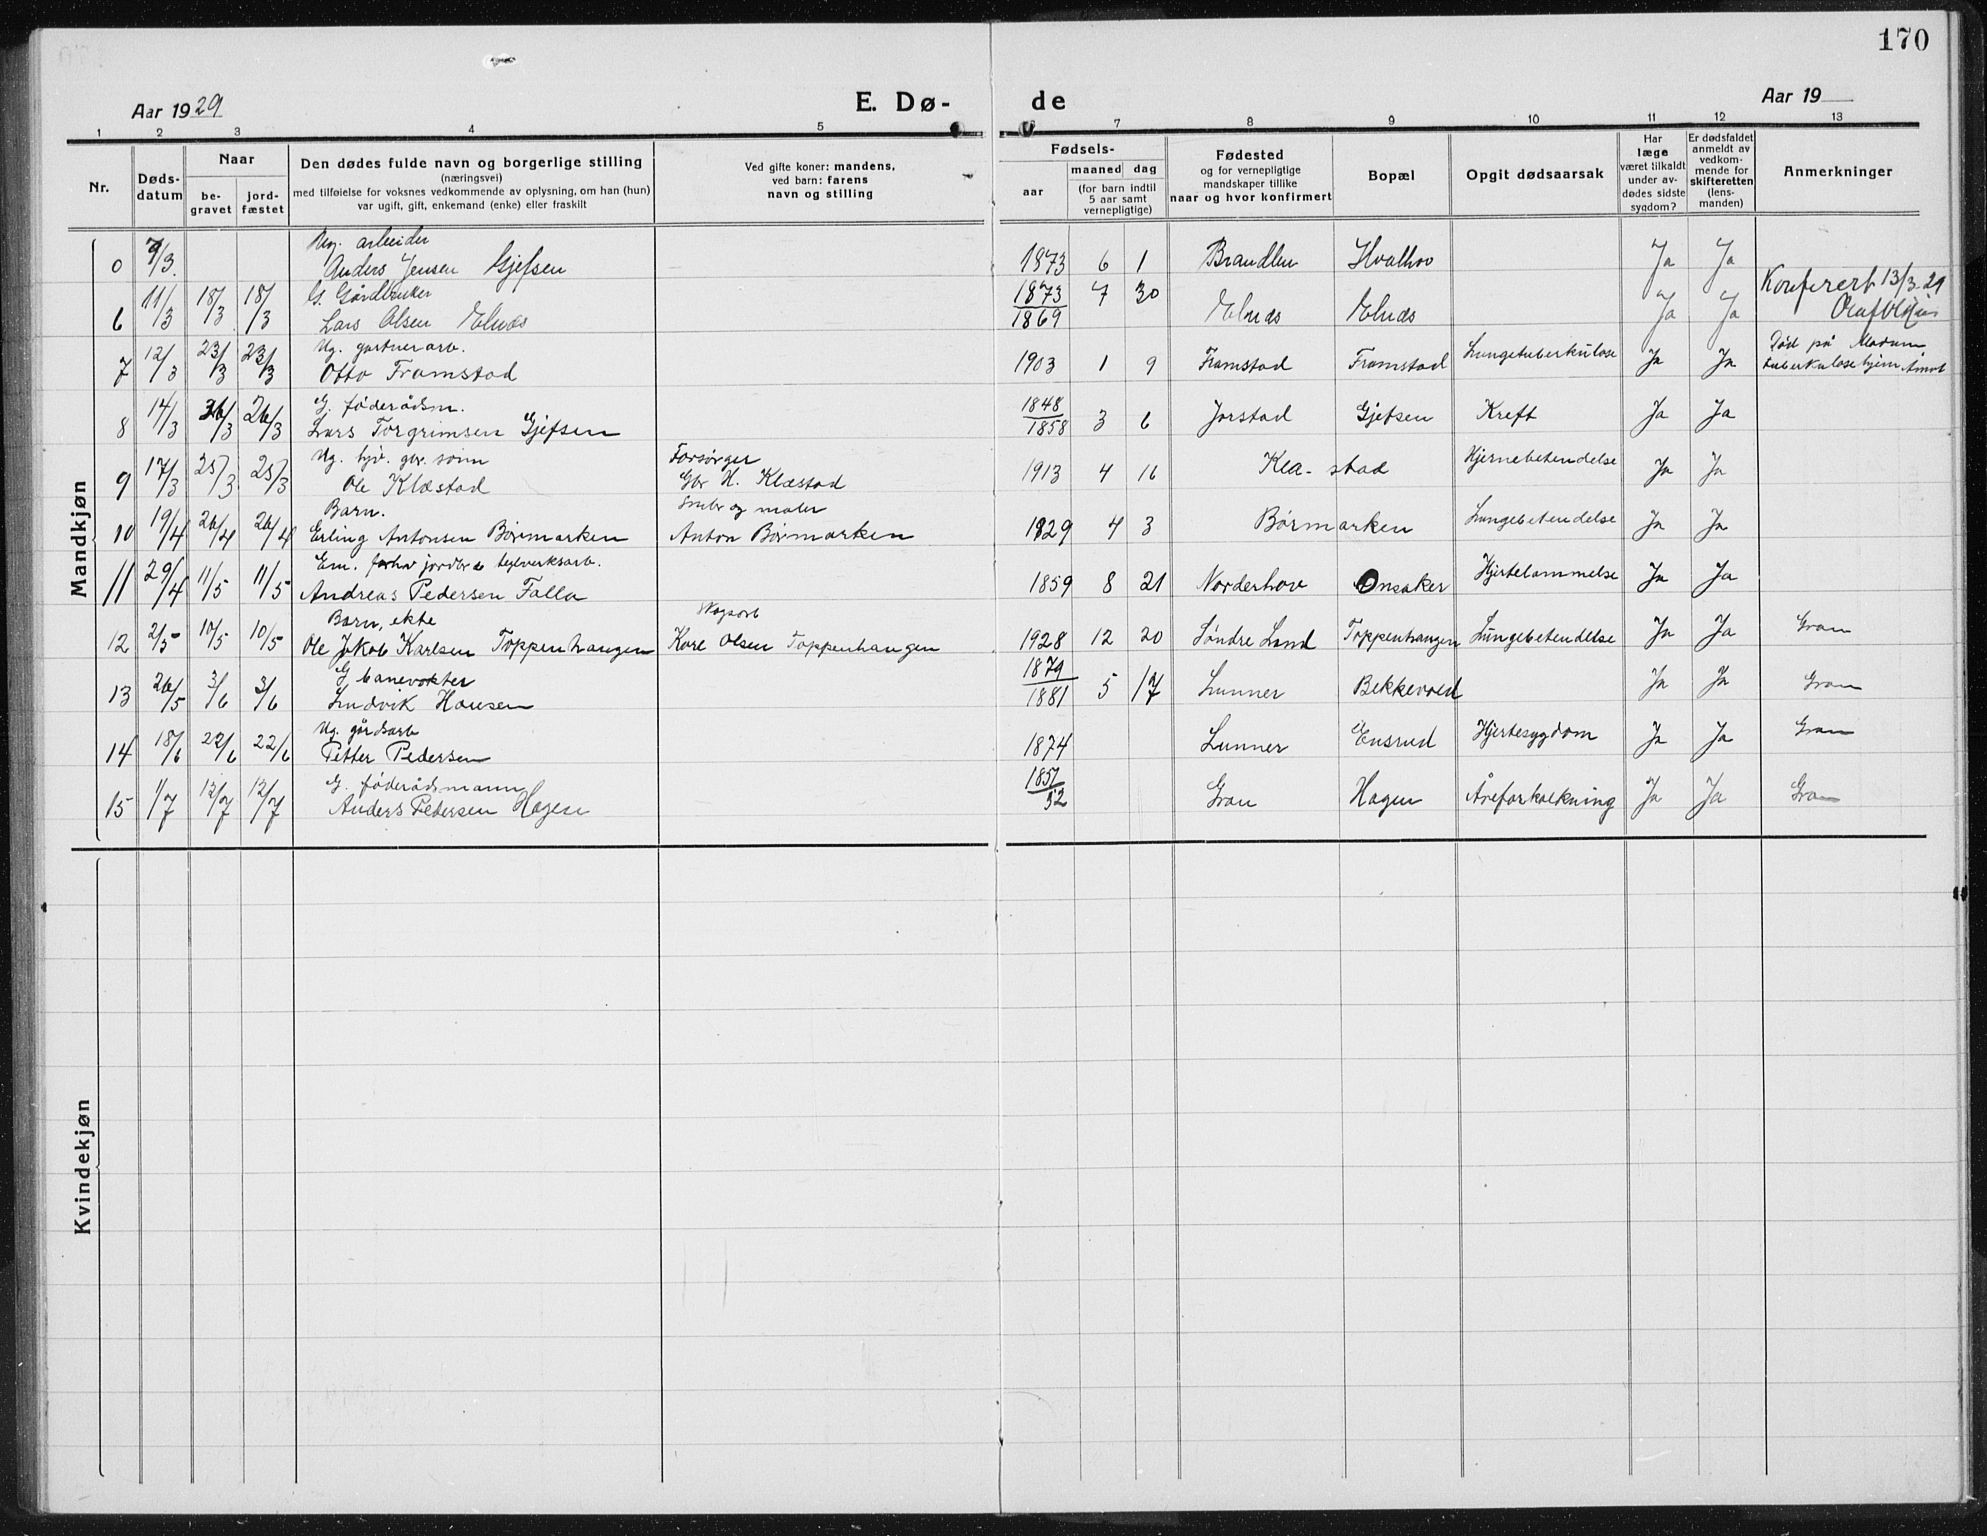 170
Aar 1929 E. Dø- de Aar 19
1 2 3 4 5 6 7 8 9 10 11 12 13
Nr. Døds-datum Naar be-gravet jord-fæstet Den dødes fulde navn og borgerlige stilling (næringsvei) med tilføielse for voksnes vedkommende av oplysning, om han (hun) var ugift, gift, enkemand (enke) eller fraskilt Ved gifte koner: mandens, ved barn: farens navn og stilling Fødsels- aar maaned dag (for barn indtil 5 aar samt vernepligtige) Fødested og for vernepligtige mandskaper tillike naar og hvor konfirmert Bopæl Opgit dødsaarsak Har læge været tilkaldt under av-dødes sidste sygdom? Er dødsfaldet anmeldt av vedkom-mende for skifteretten (lens-manden) Anmerkninger
Mandkjøn
Ug. arbeider
0 9/3. Anders Jensen Gjefsen 1873 6 1 Hvalhov Ja Ja
G. Gårdbruker
6 11/3 18/3 18/3 Lars Olsen Elnæs 1873/1869 7 30 Elnæs Elnæs Ja Ja Konferert 13/3-29
Ug. gartnerarb.
7 12/3 23/3 23/3 Otto Framstad 1903 1 9 Framstad Framstad Lungetuberkulose Ja Ja Død på Modum tuberkulosehjem Åmot
G. føderådsm.
8 14/3 26/3 26/3 Lars Torgrimsen Gjefsen 1848/1858 3 6 Jorstad Gjefsen Kreft Ja Ja
Ug. hjv. gbr. sønn Forsørger
9 17/3 25/3 25/3 Ole Klæstad Gbr H. Klæstad 1913 4 16 Klæ-stad Hjernebetendelse Ja Ja
Barn. Småbr og maler
10 19/4 26/4 26/4 Erling Antonsen Børmarken Anton Børmarken 1929 4 3 Børmarken Lungebetendelse Ja Ja
Em. forhv jordbr & teglverksarb.
11 29/4 11/5 11/5 Andreas Pedersen Falla 1859 8 21 Norderhov Onsaker Hjertelammelse Ja Ja
Barn, ekte Skogsarb
12 2/5 10/5 10/5 Ole Jakob Karlsen Toppenhaugen Karl Olsen Toppenhaugen 1928 12 20 Søndre Land Toppenhaugen Lungebetendelse Ja Ja Gran
G banevokter
13 26/5 3/6 3/6 Ludvik Hansen 1879/1881 5 17 Lunner Bekkevold Ja Ja Gran
Ug. gårdsarb
14 18/6 22/6 22/6 Petter Pedersen 1874 Lunner Ensrud Hjertesygdom Ja Ja Gran
G. føderådsmann
15 1/7 12/7 12/7 Anders Pedersen Hagen 1851/52 Gran Hagen Åreforkalkning Ja Ja Gran
Kvindekjøn